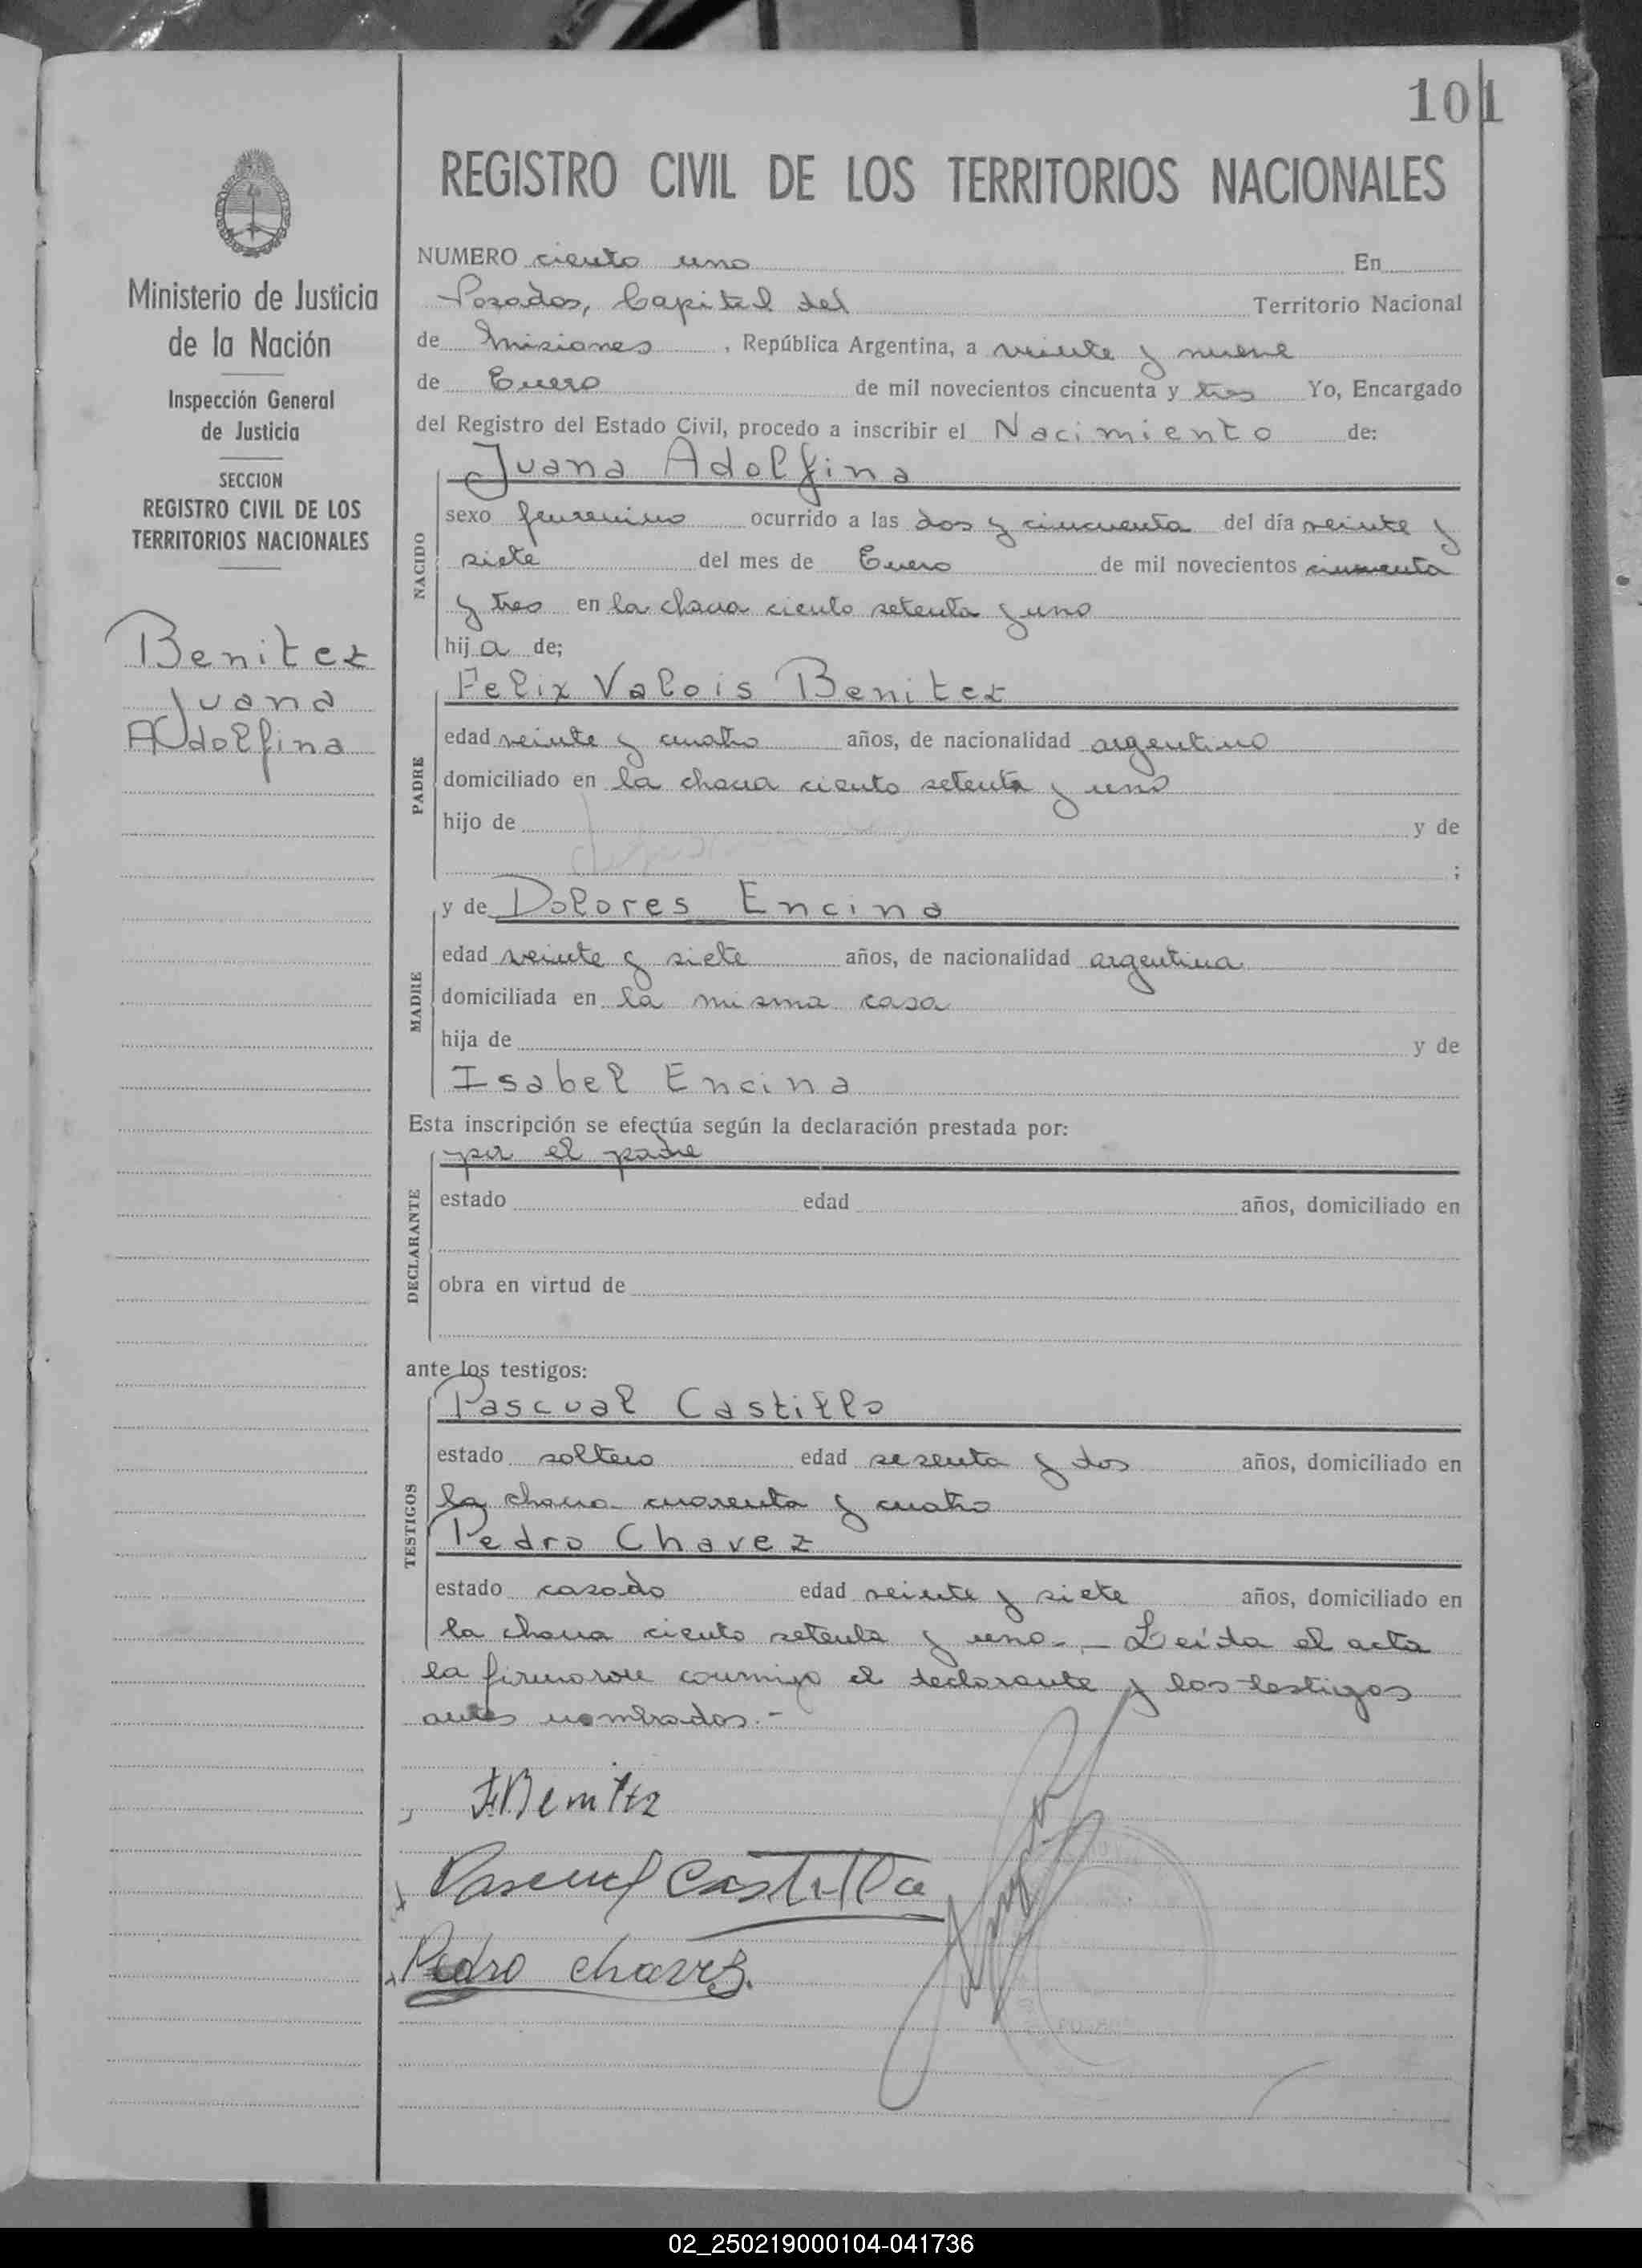 101
REGISTRO CIVIL DE LOS TERRITORIOS NACIONALES
Ministerio de Justicia
de la Nación
Inspección General
de Justicia
SECCION
REGISTRO CIVIL DE LOS
TERRITORIOS NACIONALES
Benitez
Juana
Adolfina
NUMERO ciento uno En
Posadas, Capital del Territorio Nacional
de Misiones, República Argentina, a veinte y nueve
de Enero de mil novecientos cincuenta y tres Yo, Encargado
del Registro del Estado Civil, procedo a inscribir el Nacimiento de:
NACIDO
Juana Adolfina
sexo femenino ocurrido a las dos y cincuenta del día veinte y
siete del mes de Enero de mil novecientos cincuenta
y tres en la chacra ciento setenta y uno
hija de;
PADRE
Felix Valois Benitez
edad veinte y cuatro años, de nacionalidad argentino
domiciliado en la chacra ciento setenta y uno
hijo de y de
;
MADRE
y de Dolores Encina
edad veinte y siete años, de nacionalidad argentina
domiciliada en la misma casa
hija de y de
Isabel Encina
Esta inscripción se efectúa según la declaración prestada por:
DECLARANTE
por el padre
estado edad años, domiciliado en
obra en virtud de
ante los testigos:
TESTIGOS
Pascual Castillo
estado soltero edad sesenta y dos años, domiciliado en
la chacra cuarenta y cuatro
Pedro Chavez
estado casado edad veinte y siete años, domiciliado en
la chacra ciento setenta y uno.- Leída el acta
la firmaron conmigo el declarante y los testigos
antes nombrados.-
F. Benitez
Pascual Castillo
Pedro Chavez.
02_250219000104-041736